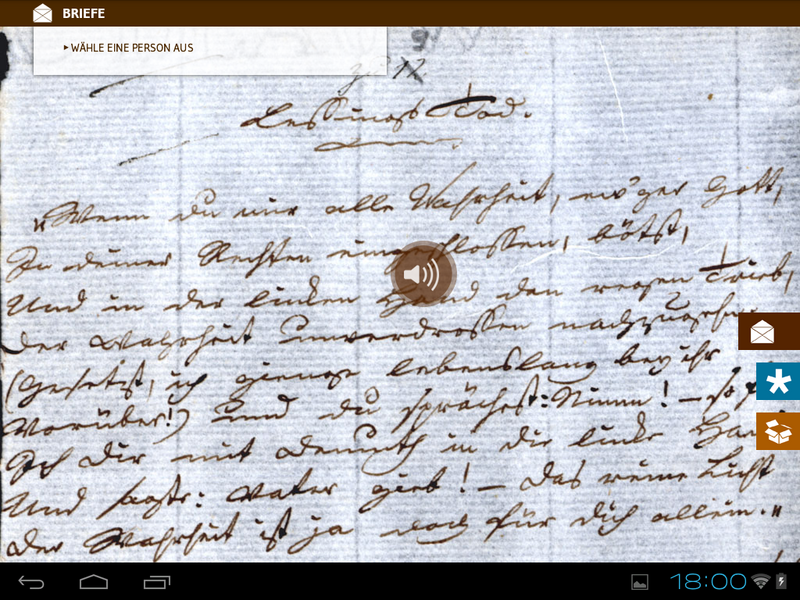 BRIEFE
WÄHLE EINE PERSON AUS
Lessings Tod.
„Wenn du mir alle Wahrheit, ew'ger Gott,
In deiner Rechten eingeschlossen, bötst,
Und in der linken Hand den regen Trieb,
Der Wahrheit unverdrossen nachzugehn
(Gesetzt, ich gienge lebenslang bey ihr
Vorüber!) und du sprächest: Nimm! – so
Ich dir mit Demuth in die linke
Und sagte: Vater gieb! – Das reine Licht
Der Wahrheit ist ja doch für dich allein."
18:00